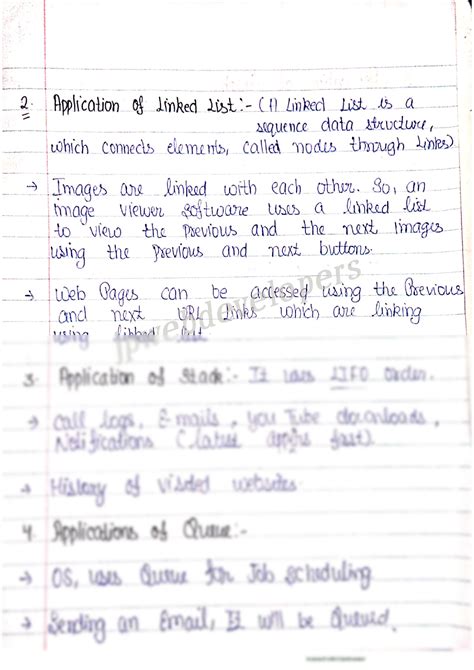 2. Application of Linked List:- (A Linked List is a
sequence data structure,
which connects elements, called nodes through Links)
→ Images are linked with each other. So, an
image viewer software uses a linked list
to view the previous and the next images
using the previous and next buttons.
→ Web Pages can be accessed using the Previous
and next URL Links which are linking
using linked list
jpwebdevelopers
3. Application of Stack:- It uses LIFO order.
→ Call logs, E-mails, You Tube downloads,
Notifications (latest first).
→ History of visited websites.
4. Applications of Queue:-
→ OS, uses Queue for Job scheduling
→ Sending an Email, It will be Queued.